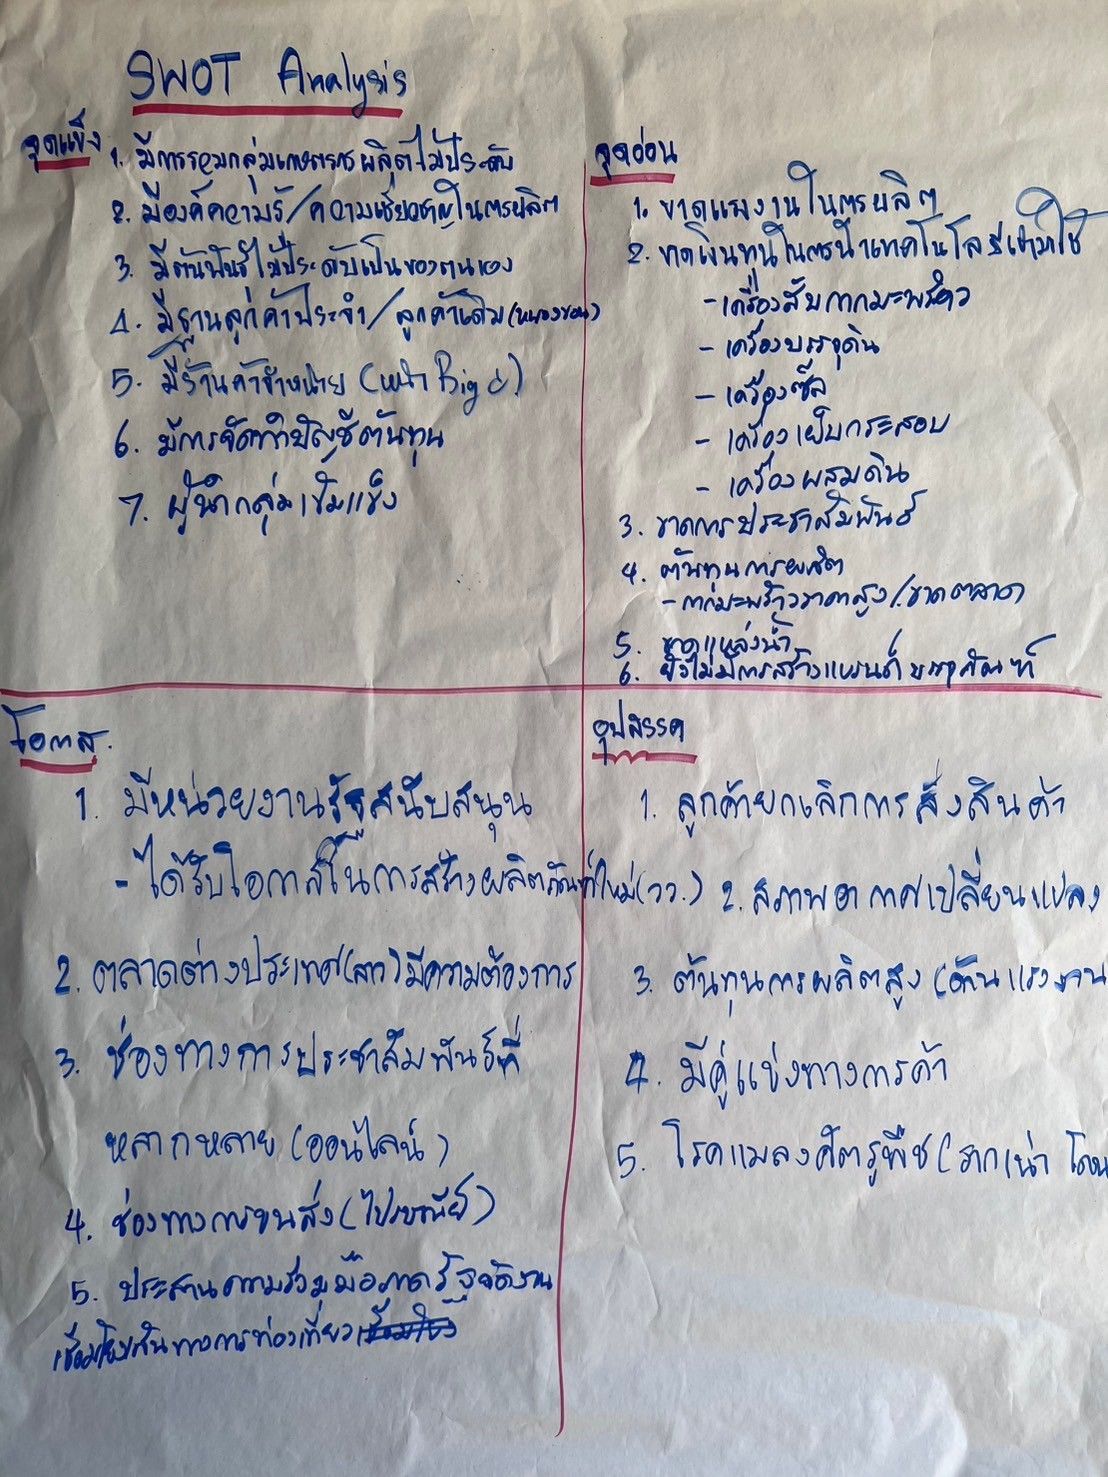 SWOT Analysis
จุดแข็ง
1. มีการรวมกลุ่มเกษตรกรผลิตไม้ประดับ
2. มีองค์ความรู้/ความเชี่ยวชาญในการผลิต
3. มีต้นพันธุ์ไม้ประดับเป็นของตนเอง
4. มีฐานลูกค้าประจำ/ลูกค้าเดิม
5. มีร้านค้าจำหน่าย (หน้า Big C)
6. มีการจัดทำบัญชีต้นทุน
7. ผู้นำกลุ่มเข้มแข็ง
จุดอ่อน
1. ขาดแรงงานในการผลิต
2. ขาดเงินทุนในการนำเทคโนโลยีเข้ามาใช้
- เครื่องสับกากมะพร้าว
- เครื่องบรรจุดิน
- เครื่องซีล
- เครื่องเย็บกระสอบ
- เครื่องผสมดิน
3. ขาดการประชาสัมพันธ์
4. ต้นทุนการผลิต
- กากมะพร้าวราคาสูง/ขาดตลาด
5. ขาดแหล่งน้ำ
6. ยังไม่มีการสร้างแบรนด์ บรรจุภัณฑ์
โอกาส
1. มีหน่วยงานรัฐสนับสนุน
- ได้รับโอกาสในการสร้างผลิตภัณฑ์ใหม่(วว.)
2. ตลาดต่างประเทศ(ลาว)มีความต้องการ
3. ช่องทางการประชาสัมพันธ์ที่
หลากหลาย (ออนไลน์)
4. ช่องทางการขนส่ง (ไปรษณีย์)
5. ประสานความร่วมมือภาครัฐจัดงาน
เชื่อมโยงเส้นทางการท่องเที่ยว
อุปสรรค
1. ลูกค้ายกเลิกการสั่งสินค้า
2. สภาพอากาศเปลี่ยนแปลง
3. ต้นทุนการผลิตสูง (ด้านแรงงาน
4. มีคู่แข่งทางการค้า
5. โรคแมลงศัตรูพืช (รากเน่า โคน